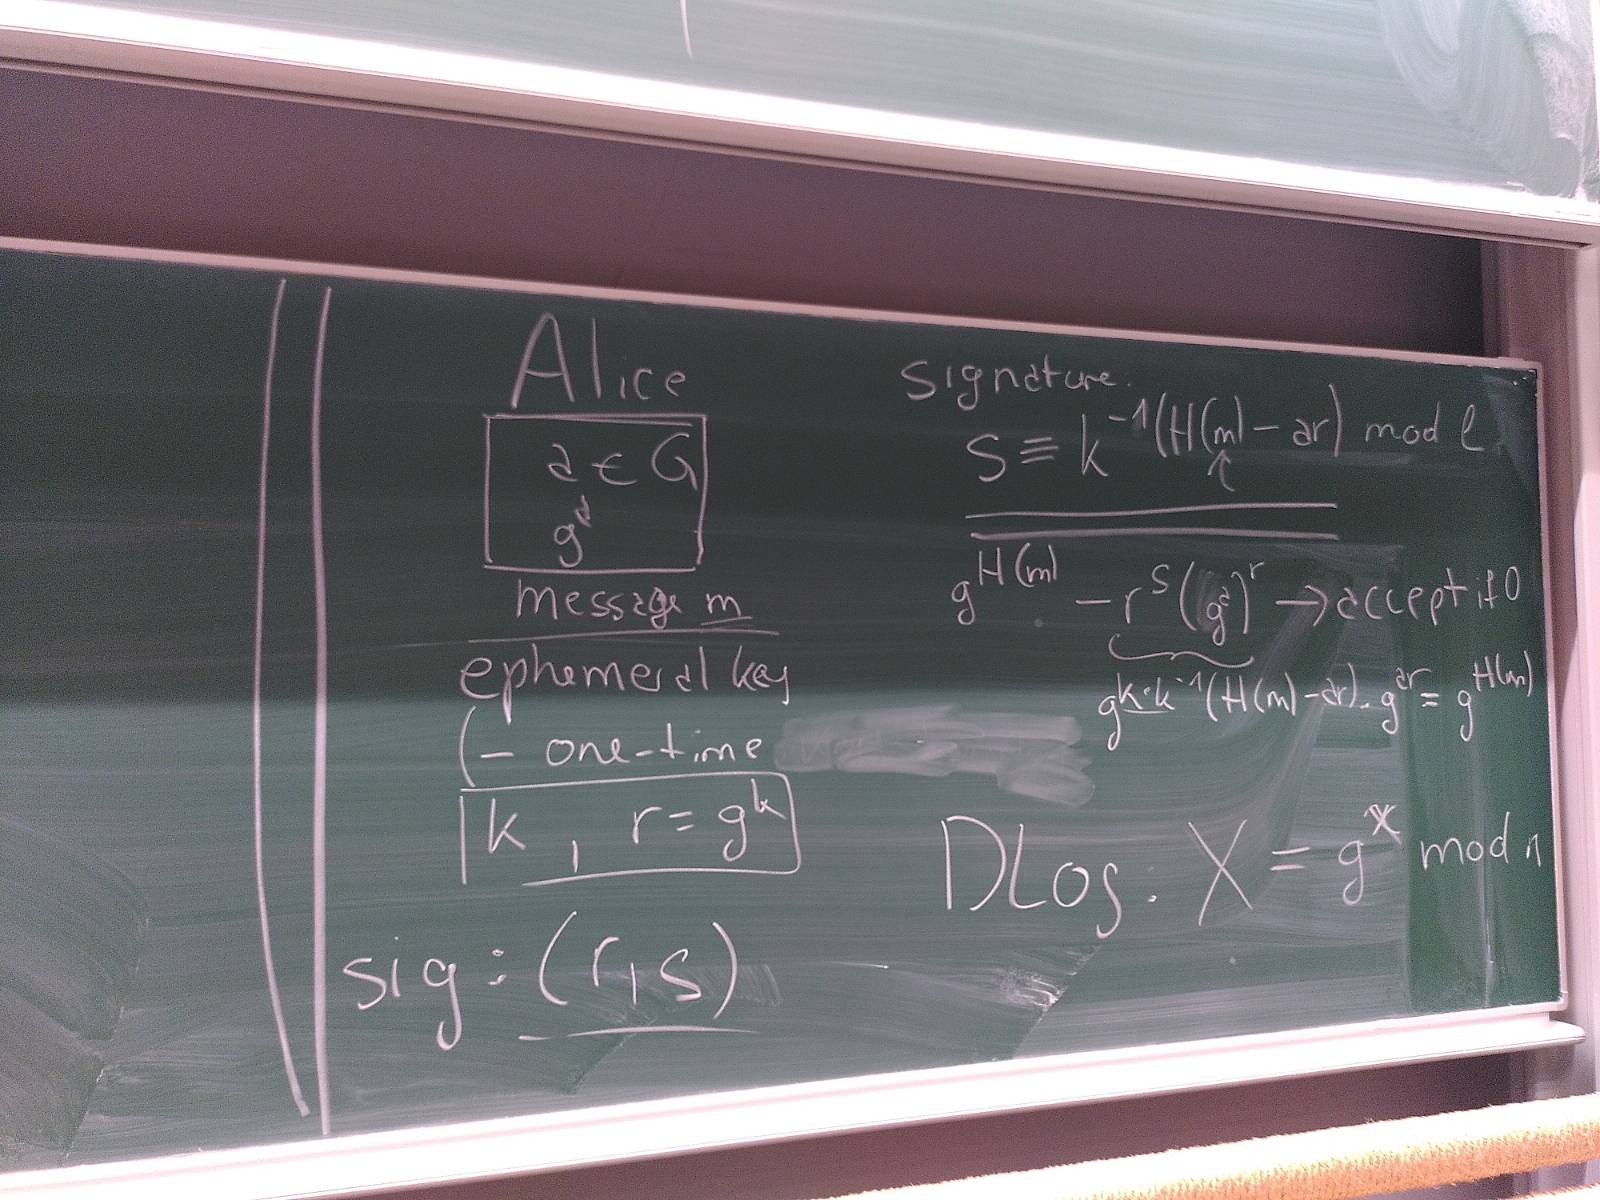 Alice
a ∈ G
g^a
message m
ephemeral key
(- one-time
k, r = g^k
sig: (r, s)
Signature.
S ≡ k^-1 (H(m) - ar) mod l
g^H(m) - r^s (g^a)^r → accept if 0
g^k·k^-1 (H(m) - ar) · g^ar = g^H(m)
DLog: X = g^x mod n